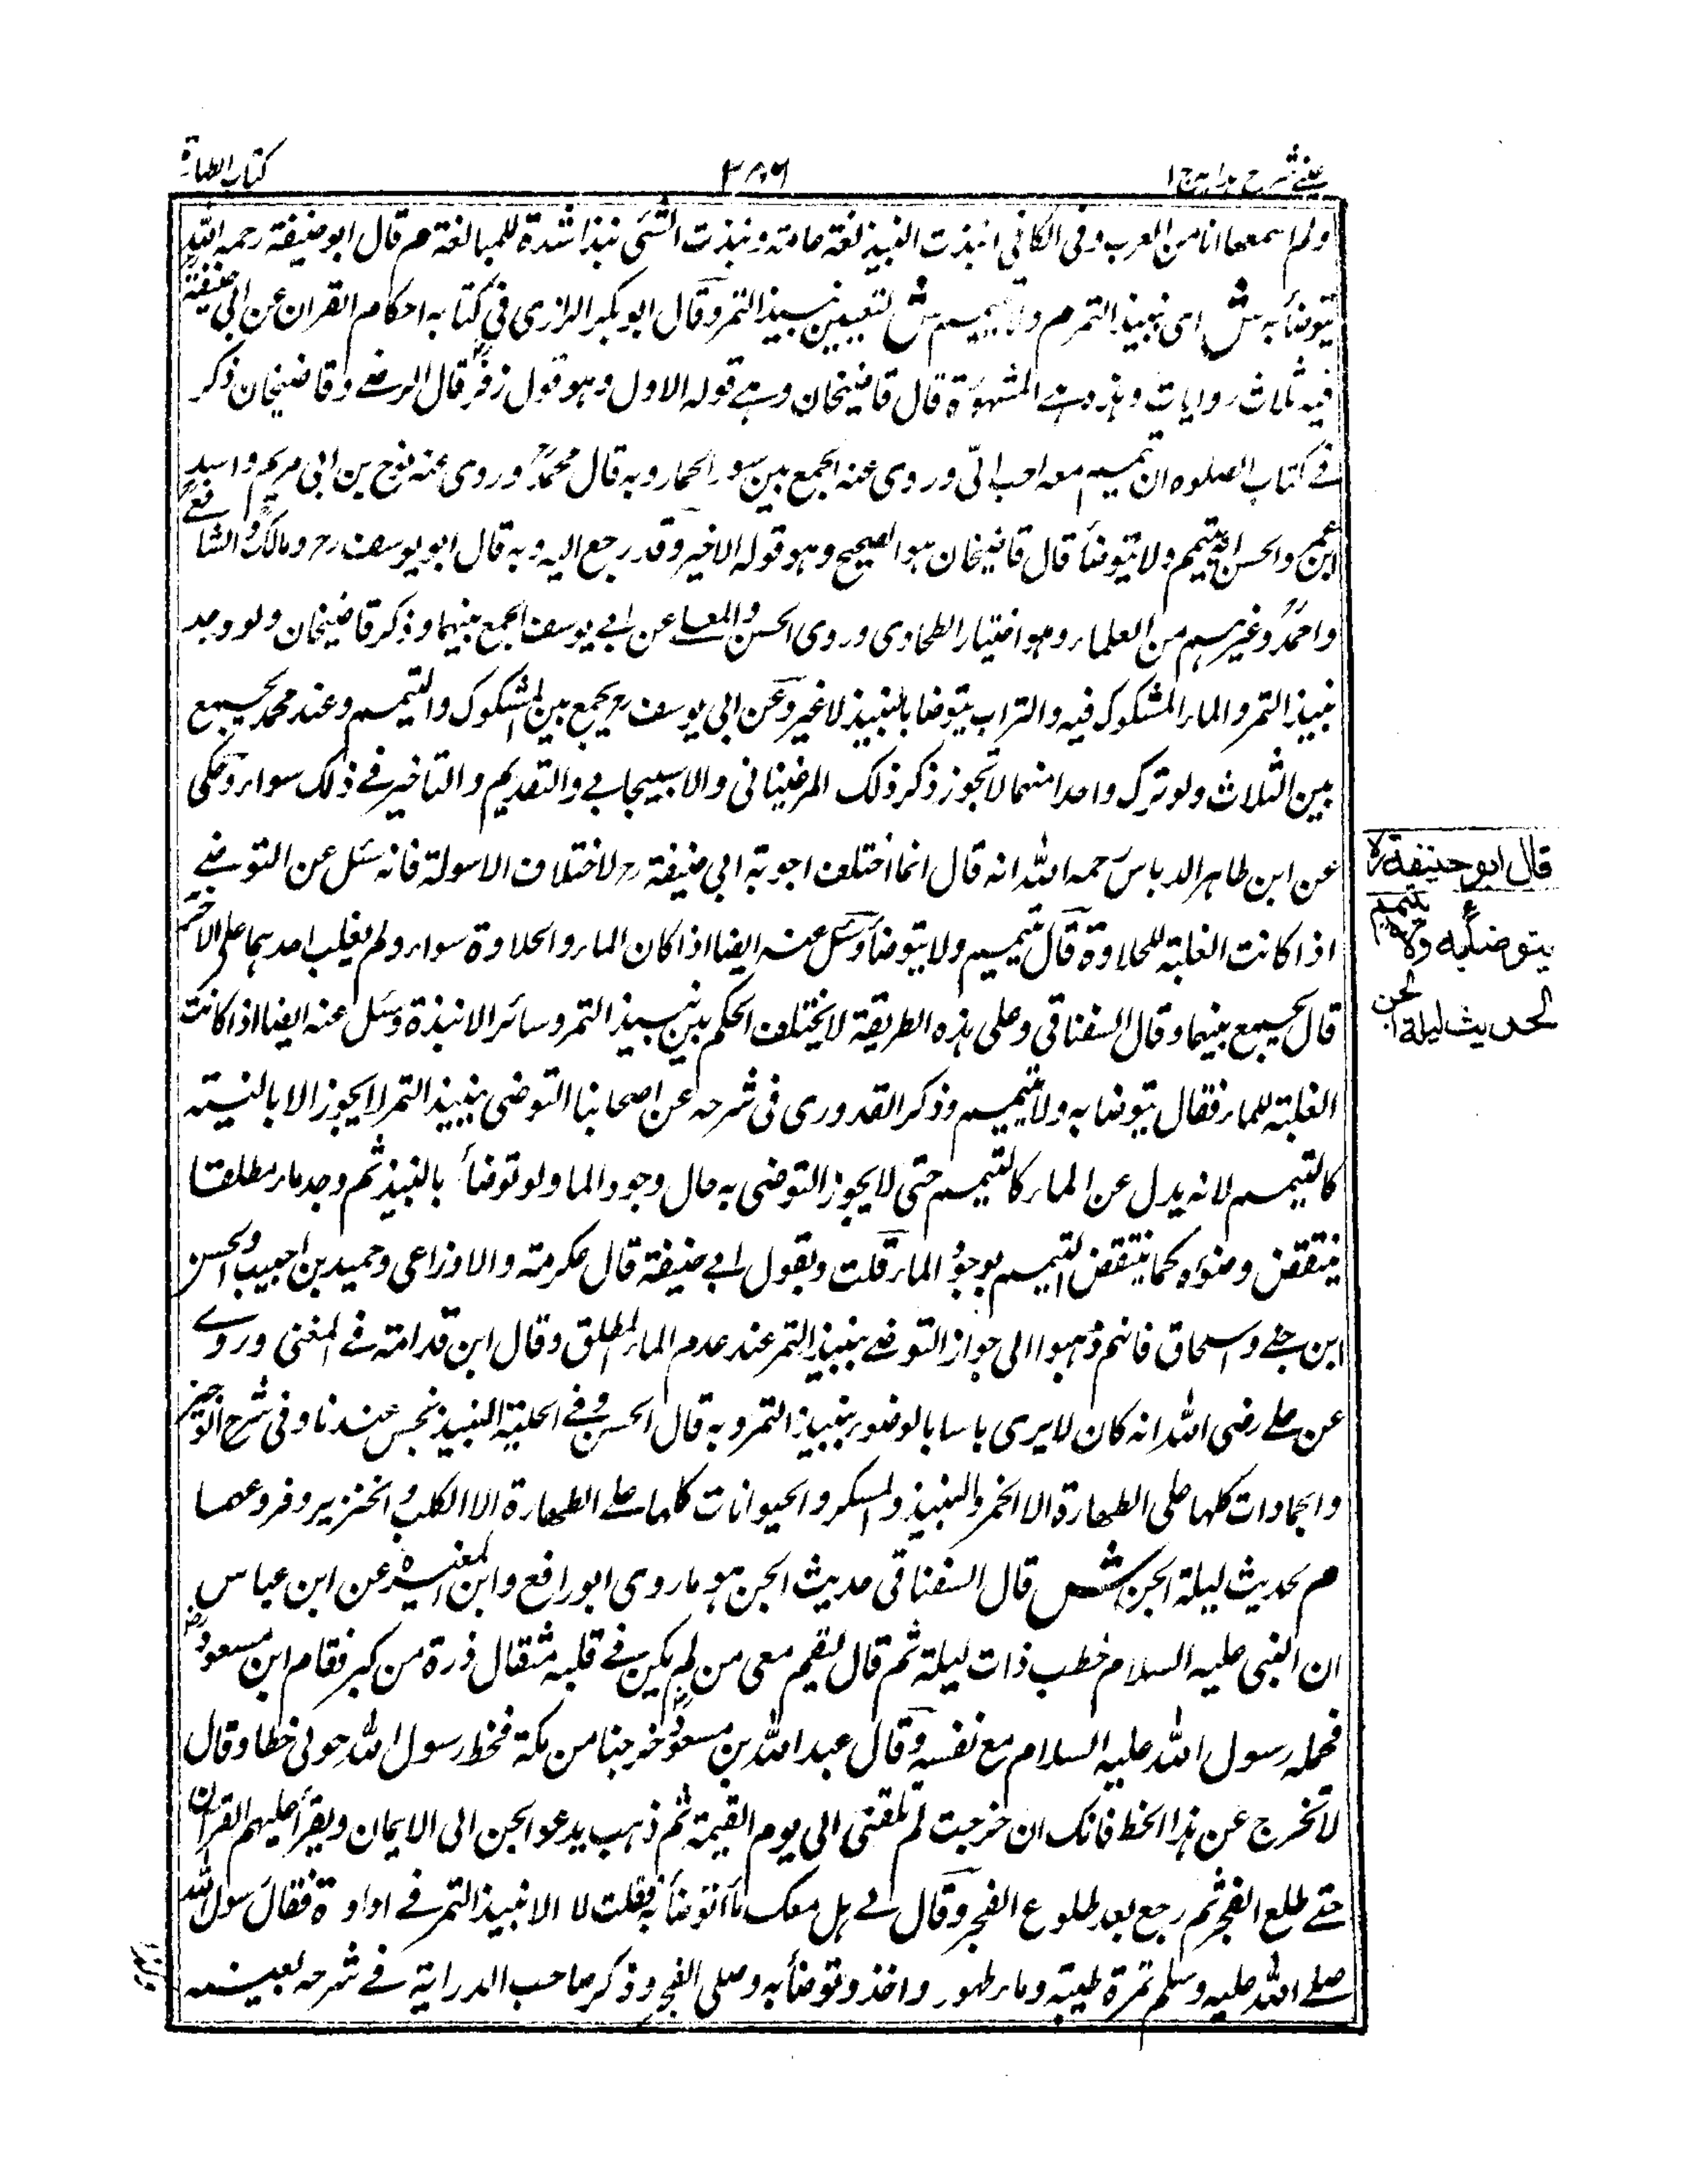 عینی شرح ہدایہ ج ۱
۳۸۶
کتاب الطہارۃ
ولم اسمعها انا من العرب وفى الكافي انبذت النبيذ لغة عامة ونبذت الشئ نبذا شدة للمبالغة م قال ابو حنيفة رحمه الله
يتوضأ به ش اى بنبيذ التمر م ولا يتيمم ش لتعيين نبيذ التمر وقال ابو بكر الرازى فى كتابه احكام القران عن ابى حنيفة
فيه ثلاث روايات وهذه هى المشهورة قال قاضيخان وهى قوله الاول وهو قول زفر قال وقاضيخان ذكر
فى كتاب الصلوه ان تيمم معه احب الىّ وروى عنه الجمع بين سور الحمار وبه قال محمد وروى عنه نوح بن ابى مريم واسد
ابن عمر والحسن انه يتيمم ولا يتوضأ قال قاضيخان هو الصحيح وهو قوله الاخير وقد رجع اليه وبه قال ابو يوسف رح ومالك والشافعى
واحمد وغيرهم من العلماء وهو اختيار الطحاوى وروى الحسن والمعلى عن ابى يوسف الجمع بينهما وذكر قاضيخان ولو وجد
نبيذ التمر والماء المشكوك فيه والتراب يتوضا بالنبيذ لا غير وعن ابى يوسف رح يجمع بين المشكوك والتيمم وعند محمد يجمع
بين الثلاث ولو ترك واحدا منهما لا تجوز ذكر ذلك المرغينانى والاسبيجابى والتقديم والتاخير فى ذلك سواء وحكى
عن ابن طاهر الدباس رحمه الله انه قال انما اختلف اجوبة ابى حنيفة رح لاختلاف الاسولة فانه سئل عن التوضى
اذا كانت الغلبة للحلاوة قال تيمم ولا يتوضأ وسئل عنه ايضا اذا كان الماء والحلاوة سواء ولم يغلب احدهما على الاخر
قال يجمع بينهما وقال السغناقى وعلى هذه الطريقة لا يختلف الحكم بين نبيذ التمر وسائر الانبذة وسئل عنه ايضا اذا كانت
الغلبة للماء فقال يتوضا به ولا يتيمم وذكر القدورى فى شرحه عن اصحابنا التوضى بنبيذ التمر لا يجوز الا بالنية
كالتيمم لانه بدل عن الماء كالتيمم حتى لا يجوز التوضى به حال وجود الما ولو توضأ بالنبيذ ثم وجد ماء مطلقا
ينتقض وضوءه كما ينتقض التيمم بوجود الماء قلت وبقول ابى حنيفة قال عكرمة والاوزاعى وحميد بن حبيب والحسن
ابن حى واسحاق فانهم ذهبوا الى جواز التوضى بنبيذ التمر عند عدم الماء المطلق وقال ابن قدامة فى المغنى وروى
عن على رضى الله انه كان لا يرى باسا بالوضوء بنبيذ التمر وبه قال الحسن وفى الحلية النبيذ نجس عندنا وفى شرح الوجيز
والجمادات كلها على الطهارة الا الخمر والنبيذ والمسكر والحيوانات كلها على الطهارة الا الكلب والخنزير وفروعهما
م لحديث ليلة الجن ش قال السغناقى حديث الجن هو ما روى ابو رافع وابن المغيرة عن ابن عباس
ان النبى عليه السلام خطب ذات ليلة ثم قال ليقم معى من لم يكن فى قلبه مثقال ذرة من كبر فقام ابن مسعود رض
فحمله رسول الله عليه السلام مع نفسه وقال عبد الله بن مسعود خرجنا من مكة فخط رسول الله حولى خطا وقال
لا تخرج عن هذا الخط فانك ان خرجت لم تلقنى الى يوم القيمة ثم ذهب يدعو الجن الى الايمان ويقرأ عليهم القرآن
حتى طلع الفجر ثم رجع بعد طلوع الفجر وقال لى هل معك ماء أتوضأ به فقلت لا الا نبيذ التمر فى اداوة فقال رسول الله
صلى الله عليه وسلم تمرة طيبة وماء طهور واخذ وتوضأ به وصلى الفجر وذكر صاحب الدراية فى شرحه بعينه
قال ابو حنيفة رح
يتوضأ به ولا يتيمم
لحديث ليلة الجن